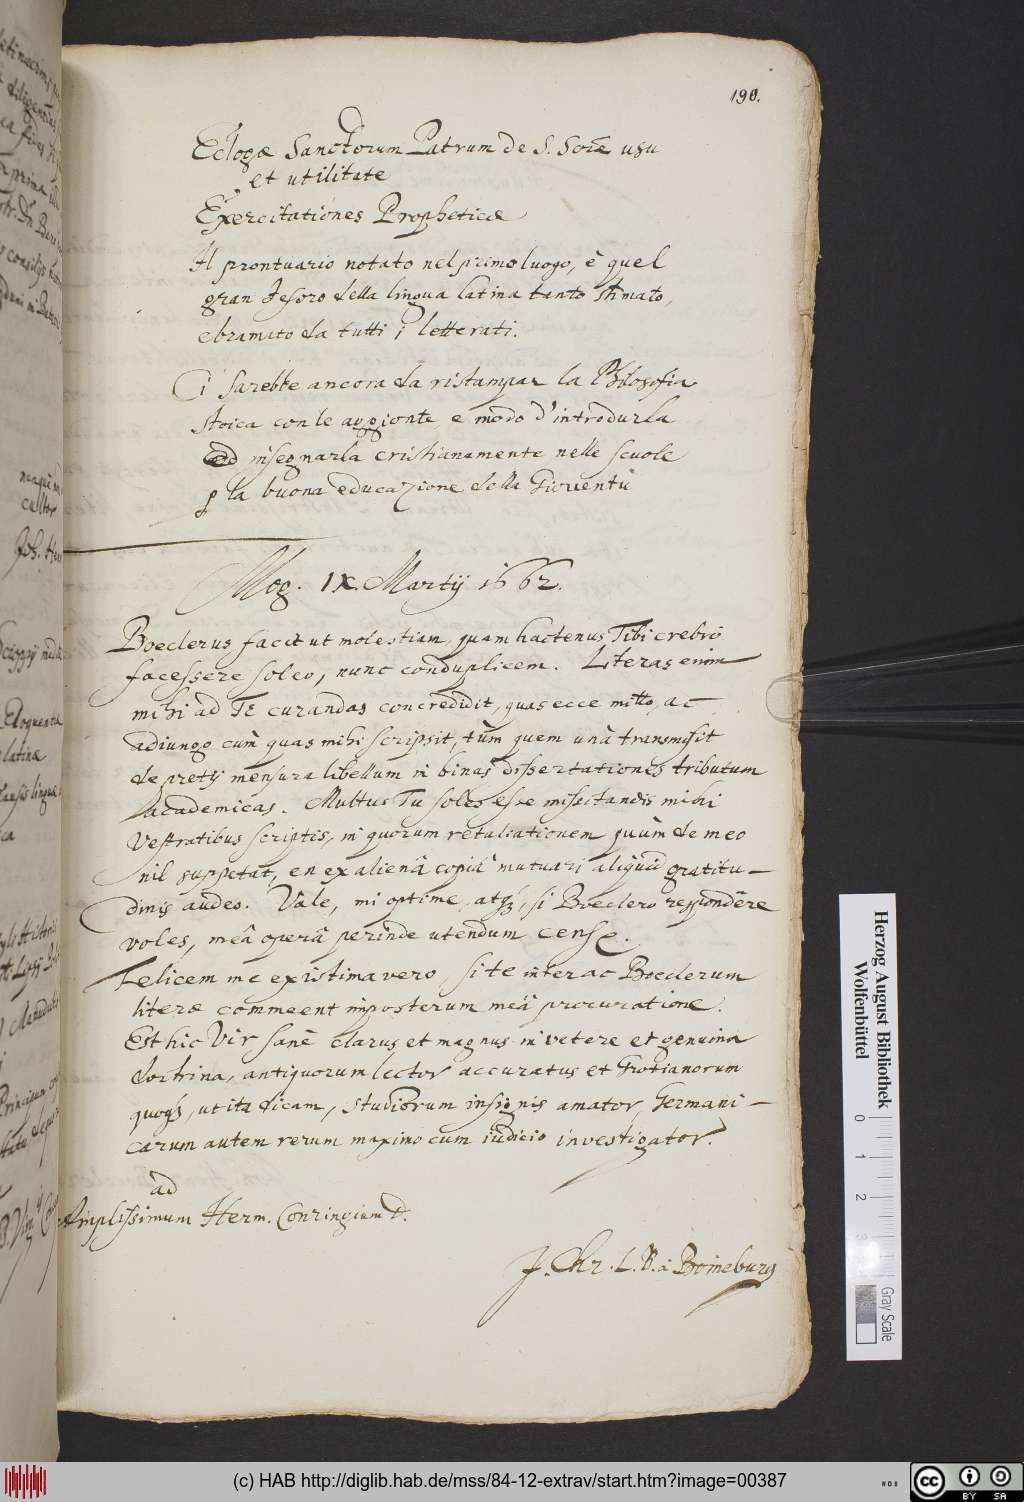 190.
Eclogæ Sanctorum Patrum de S. Scræ usu
et utilitate
Exercitationes Propheticæ
Il prontuario notato nel primo luogo, è quel
gran tesoro della lingua latina tanto stimato,
e bramato da tutti i letterati.
Ci sarebbe ancora da ristampar la Philosofia
stoica con le aggionte e modo d'introdurla
ed insegnarla cristianamente nelle scuole
p la buona educazione della Gioventù
Mog. IX. Martij 1662.
Boeclerus facit ut molestiam, quam hactenus Tibi crebrò
facessere soleo, nunc conduplicem. Literas enim
mihi ad Te curandas concredidit, quas ecce mitto, ac
adiungo cum quas mihi scripsit, tùm quem unà transmisit
de pretij mensura libellum in binas dissertationes tributum
academicas. Multus Tu soles esse missitandis mihi
Vestratibus scriptis, in quorum retaliationem quùm de meo
nil suppetat, en ex alienâ copiâ mutuari aliquid gratitu-
dinis audeo. Vale, mi optime, atq;, si Boeclero respondere
voles, meâ operâ perinde utendum cense.
Felicem me existimavero si te inter ac Boeclerum
literæ commeent imposterum meâ procuratione.
Est hic Vir sanè clarus et magnus in vetere et genuina
doctrina, antiquorum lector accuratus et Grotianorum
quoq;, ut ita dicam, studiorum insignis amator, Germani-
carum autem rerum maximo cum iudicio investigator.
ad
Amplissimum Herm. Conringium D.
J. Chr. L. B. à Boineburg
Herzog August Bibliothek
Wolfenbüttel
0 1 2 3
Gray Scale
(c) HAB http://diglib.hab.de/mss/84-12-extrav/start.htm?image=00387
cc BY SA